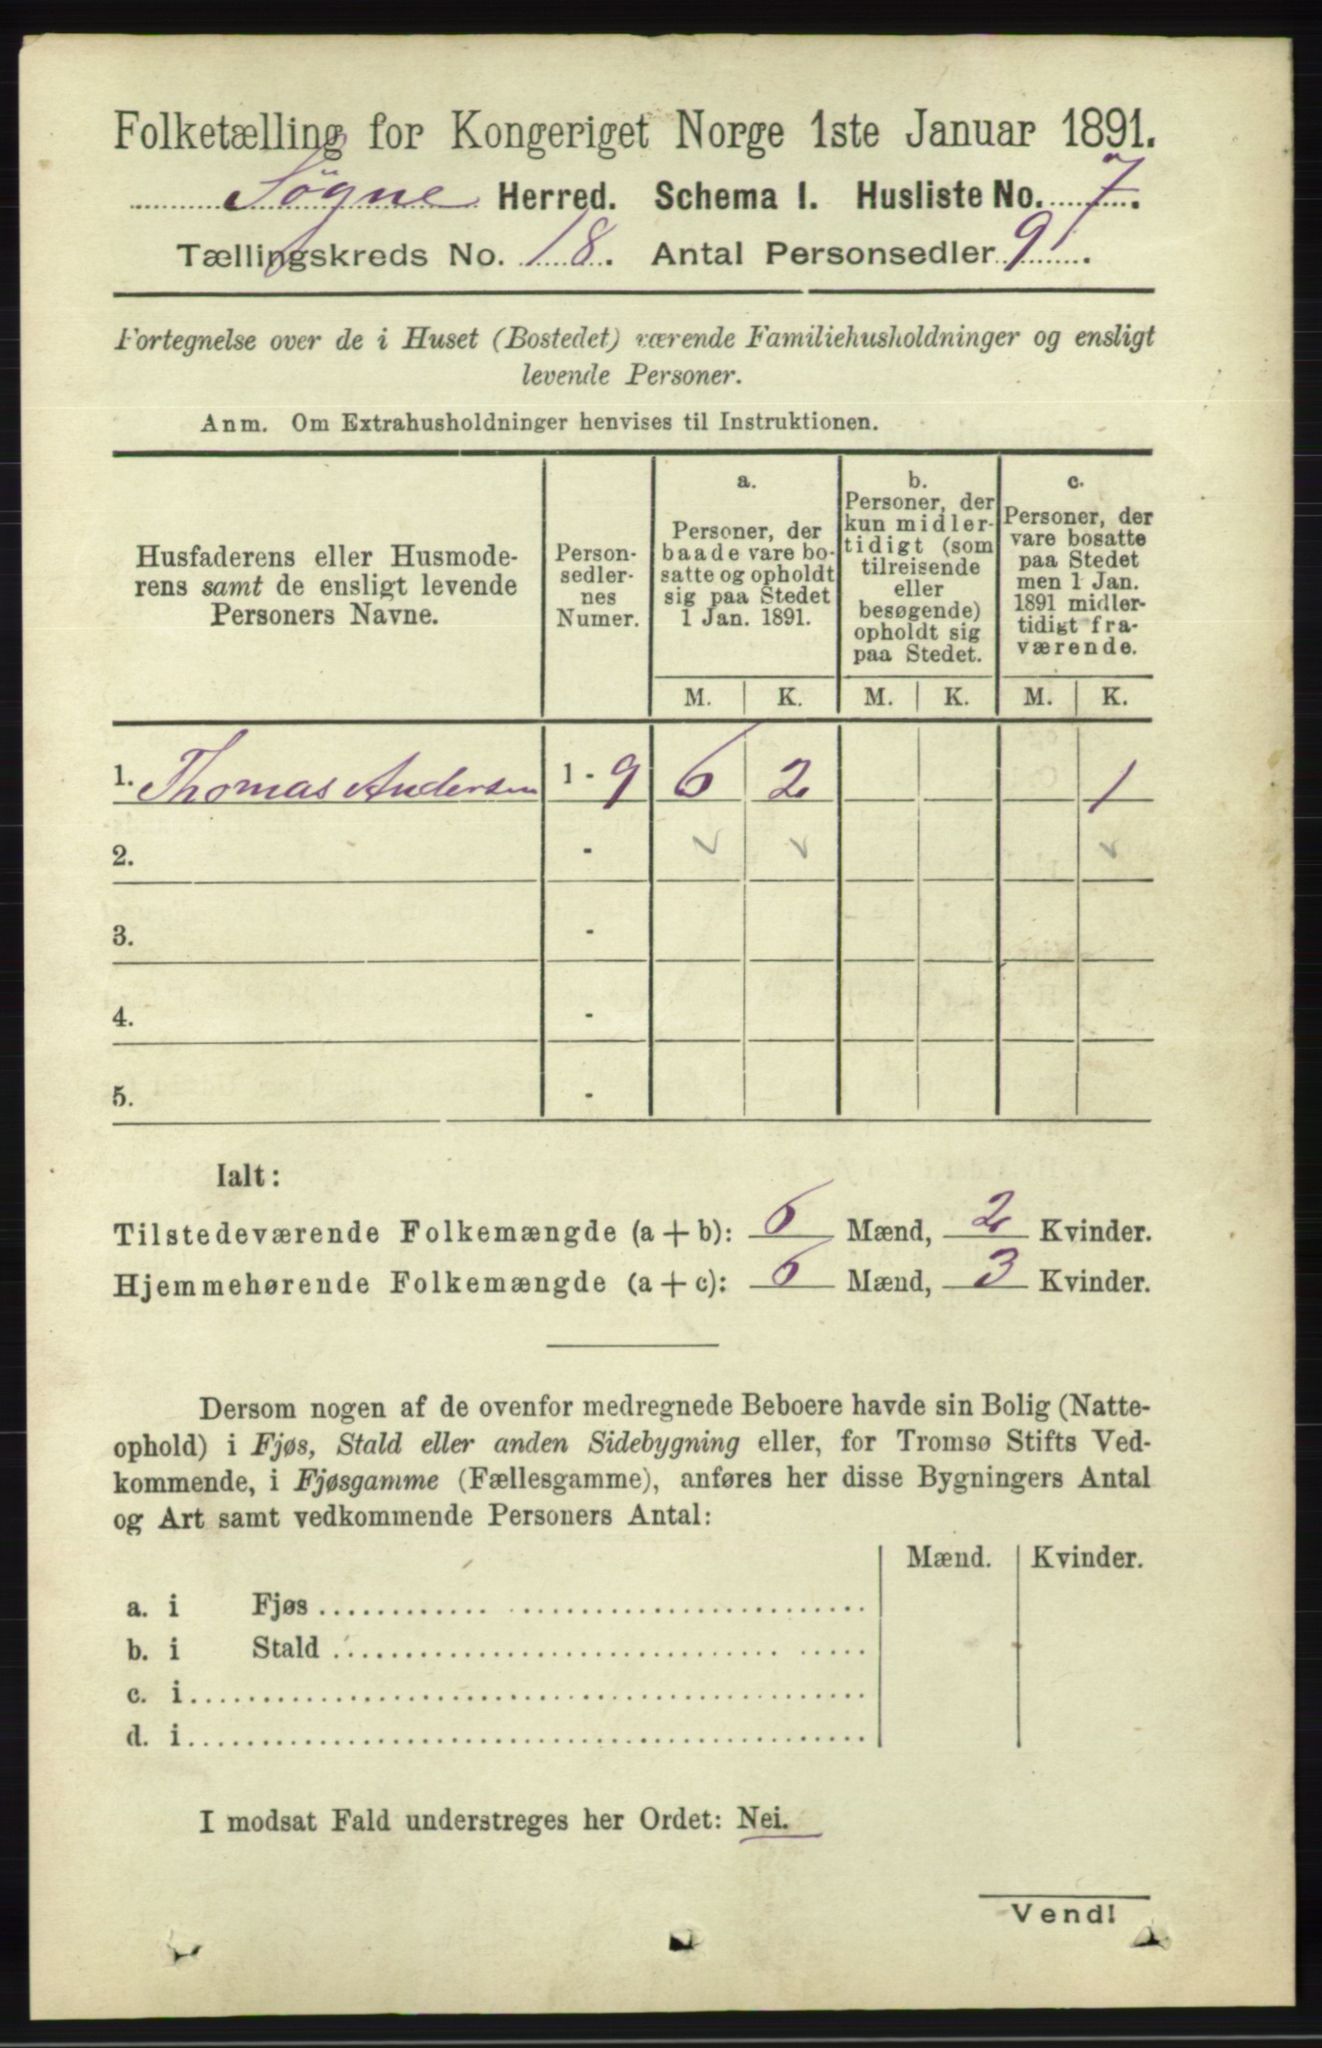 Folketælling for Kongeriget Norge 1ste Januar 1891.
Søgne Herred. Schema 1. Husliste No. 7.
Tællingskreds No. 18. Antal Personsedler 9.
Fortegnelse over de i Huset (Bostedet) værende Familiehusholdninger og ensligt
levende Personer.
Anm. Om Extrahusholdninger henvises til Instruktionen.
Husfaderens eller Husmode-
rens samt de ensligt levende
Personers Navne.
Person-
sedler-
nes
Numer.
a.
Personer, der
baade vare bo-
satte og opholdt
sig paa Stedet
1 Jan. 1891.
b.
Personer, der
kun midler-
tidigt (som
tilreisende
eller
besøgende)
opholdt sig
paa Stedet.
c.
Personer, der
vare bosatte
paa Stedet
men 1 Jan.
1891 midler-
tidigt fra-
værende.
M. K. M. K. M. K.
1. Thomas Andersen 1 - 9 6 2 1
2. -
3. -
4. -
5. -
Ialt:
Tilstedeværende Folkemængde (a + b): 6 Mænd, 2 Kvinder.
Hjemmehørende Folkemængde (a + c): 6 Mænd, 3 Kvinder.
Dersom nogen af de ovenfor medregnede Beboere havde sin Bolig (Natte-
ophold) i Fjøs, Stald eller anden Sidebygning eller, for Tromsø Stifts Ved-
kommende, i Fjøsgamme (Fællesgamme), anføres her disse Bygningers Antal
og Art samt vedkommende Personers Antal:
Mænd. Kvinder.
a. i Fjøs
b. i Stald
c. i
d. i
I modsat Fald understreges her Ordet: Nei.
Vend!